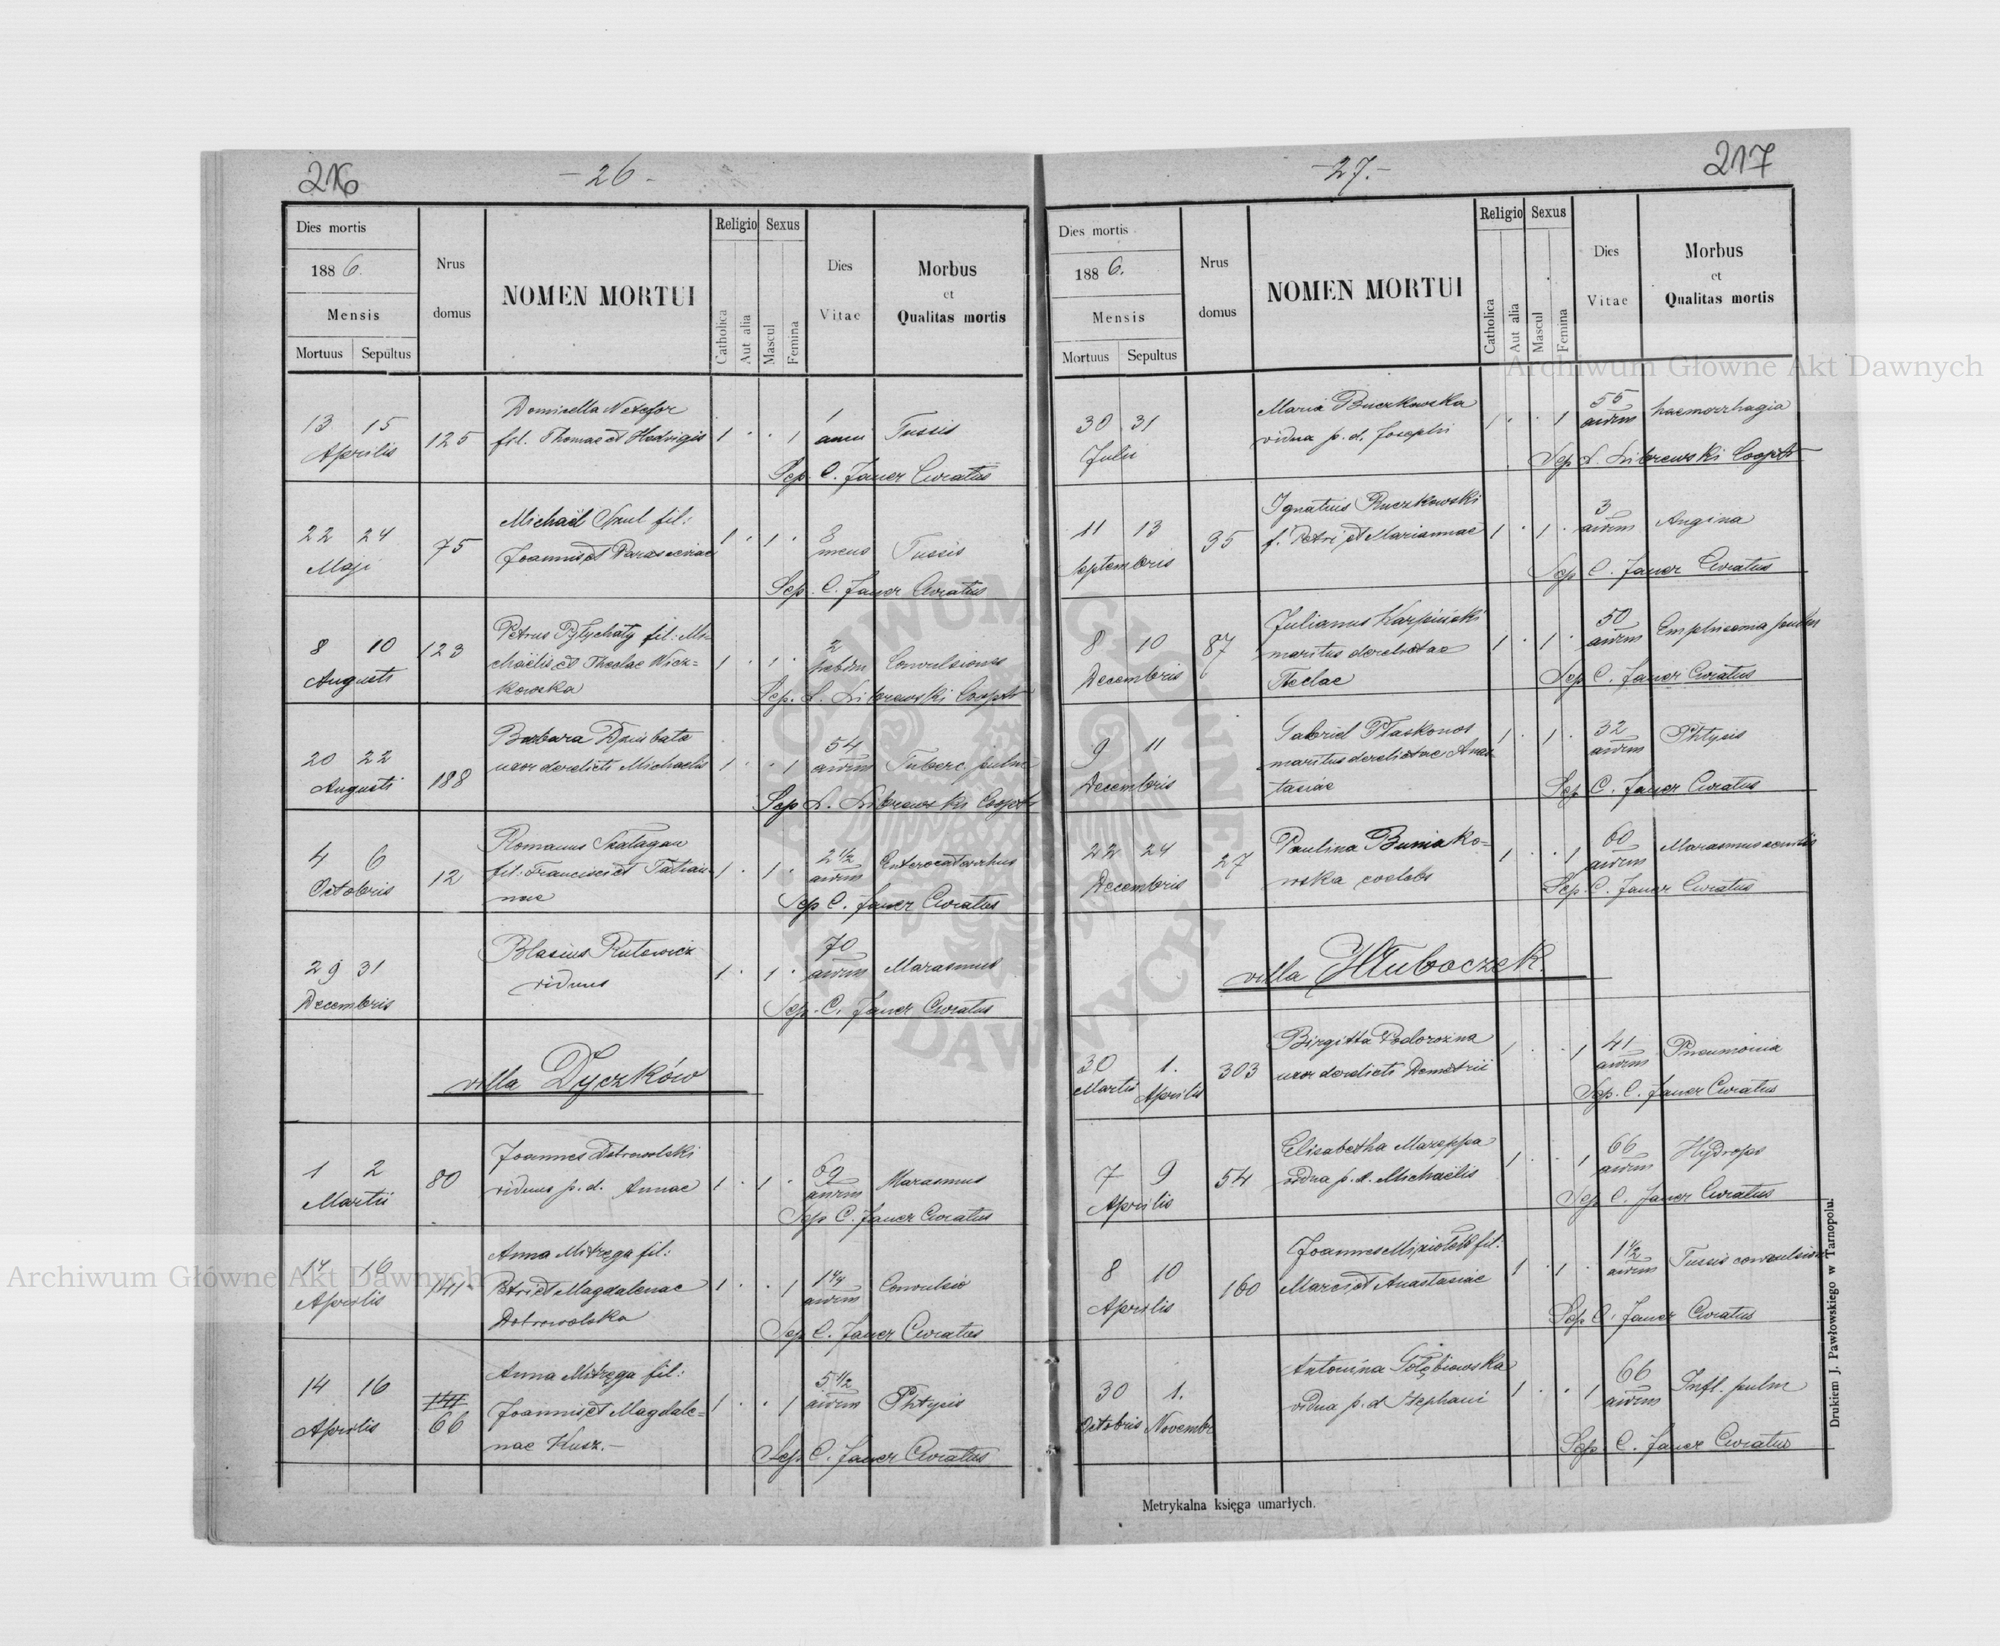 216
- 26 -
Dies mortis
1886.
Mensis
Mortuus Sepultus
Nrus domus
NOMEN MORTUI
Religio
Catholica
Aut alia
Sexus
Mascul
Femina
Dies Vitae
Morbus et Qualitas mortis
13 15 Aprilis 125
fil. Thomae et Hedvigis 1 . . 1
1 anni Tussis
Sep. C. Jauer Curatus
22 24 Maji 75
Michaël fil:
Joannis et Parasceviae 1 . 1 .
Tussis
Sep. C. Jauer Curatus
8 10 Augusti 123
Petrus fil: Mi-
chaëlis et Theclae Wicz=
kowska 1 . 1 .
2 Convulsiones
Sep. Coopts
20 22 Augusti 188
Barbara
uxor derelicti Michaelis 1 . . 1
54 annorum Tuberc. pulm
Sep. Coopts
4 6 Octobris 12
Romanus
fil: Francisci et Tatian-
nae 1 . 1 .
2 1/2 annorum
Sep C. Jauer Curatus
29 31 Decembris
Blasius Rutowicz
viduus 1 . 1 .
70 Marasmus
Sep. C. Jauer Curatus
villa Dyczków
1 2 Martii 80
Joannes Dobrowolski
viduus p. d. Annae 1 . 1 .
69 Marasmus
Sep C. Jauer Curatus
14 16 Aprilis 141
Anna Mitręga fil:
Petri et Magdalenae
Dobrowolska 1 . . 1
1 1/4 Convulsio
Sep C. Jauer Curatus
14 16 Aprilis 141 66
Anna Mitręga fil:
Joannis et Magdale=
nae Kusz.- 1 . . 1
5 1/2 Phtysis
Sep C. Jauer Curatus
217
- 27. -
Dies mortis
1886.
Mensis
Mortuus Sepultus
Nrus domus
NOMEN MORTUI
Religio
Catholica
Aut alia
Sexus
Mascul
Femina
Dies Vitae
Morbus et Qualitas mortis
30 31 Julii
Maria Buczkowska
vidua p. d. Josephi 1 . . 1
55 haemorrhagia
Sep Coopts
11 13 Septembris 35
Ignatius
f. Petri et Mariannae 1 . 1 .
3 Angina
Sep C. Jauer Curatus
8 10 Decembris 87
Julianus Karpiński
maritus derelictae
Theclae 1 . 1 .
50 Emphisema pulm
Sep C. Jauer Curatus
9 11 Decembris
Gabriel Płaskonos
maritus derelictae Anas-
tasiae 1 . 1 .
32 Phtysis
Sep C. Jauer Curatus
22 24 Decembris 27
Paulina Buniako=
wska coelebs 1 . . 1
60 Marasmus senilis
Sep. C. Jauer Curatus
villa Hłuboczek.
30 Martii 1. Aprilis 303
Birgitta Podorozna
uxor derelicti Demetrii 1 . . 1
41 Pneumonia
Sep. C. Jauer Curatus
7 9 Aprilis 54
Elisabetha Mazeppa
vidua p. d. Michaëlis 1 . . 1
66 Hydrops
Sep C. Jauer Curatus
8 10 Aprilis 160
Joannes fil:
Marci et Anastasiae 1 . 1 .
1 1/2 Tussis convulsiva
Sep C. Jauer Curatus
30 Octobris 1. Novembr
Antonina Gołębiowska
vidua p. d Stephani 1 . . 1
66 Infl. pulm
Sep C. Jauer Curatus
Metrykalna księga umarłych.
Drukiem J. Pawłowskiego w Tarnopolu.
Archiwum Główne Akt Dawnych
Archiwum Główne Akt Dawnych
ARCHIWUM GŁÓWNE AKT DAWNYCH